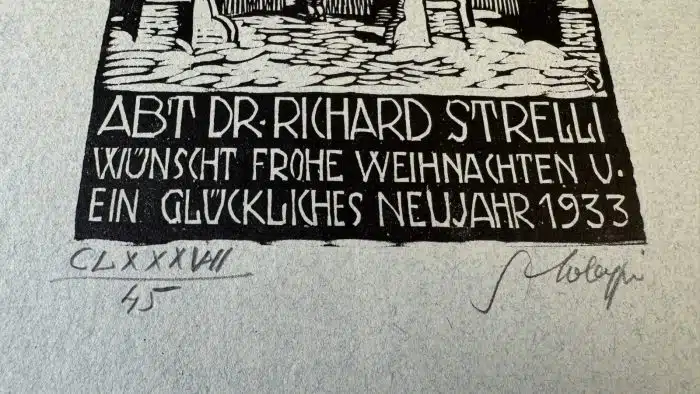 ABT DR. RICHARD STRELLI
WÜNSCHT FROHE WEIHNACHTEN U.
EIN GLÜCKLICHES NEUJAHR 1933
CLXXXVII
45